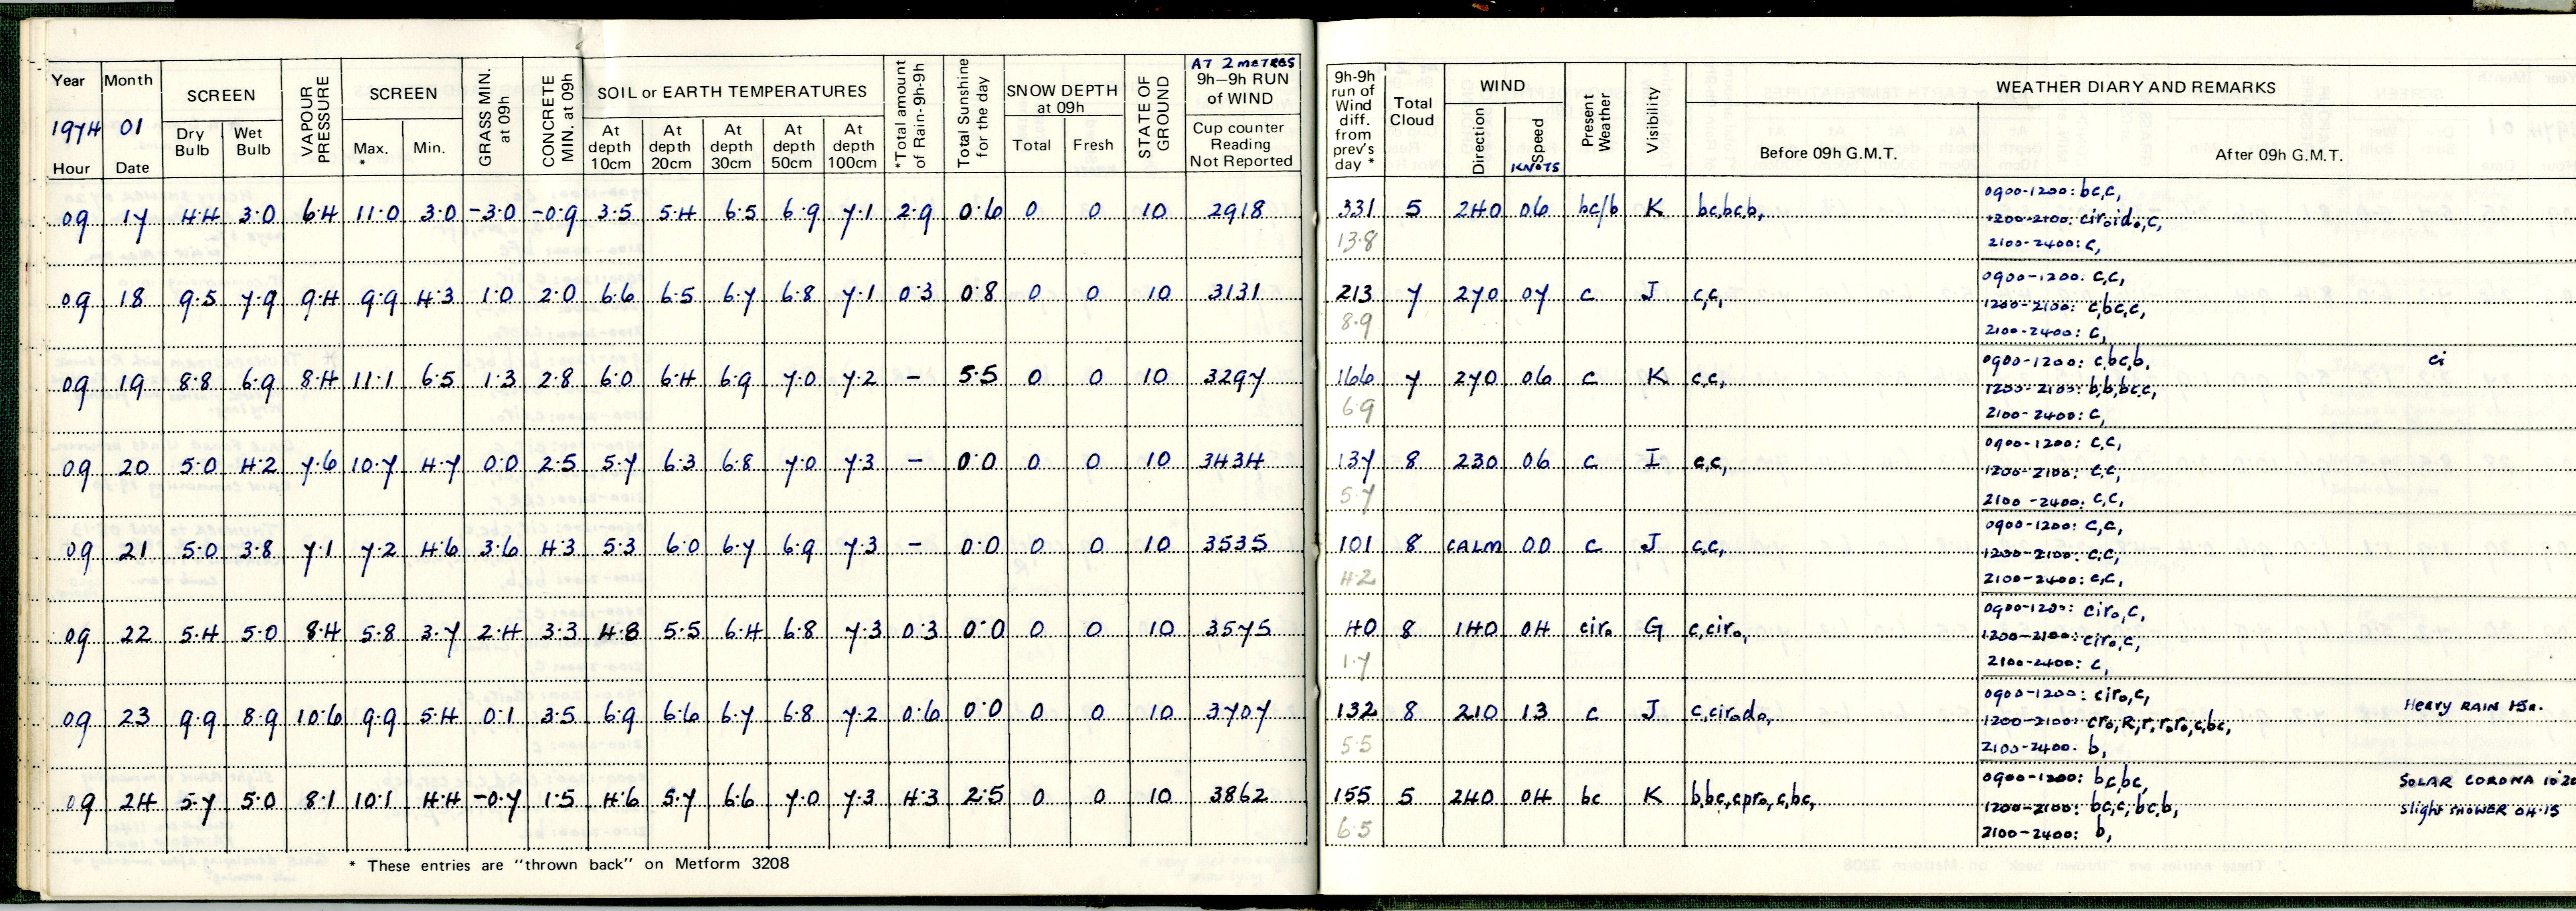 Year Month SCREEN VAPOUR PRESSURE SCREEN GRASS MIN. at 09h CONCRETE MIN. at 09h SOIL or EARTH TEMPERATURES *Total amount of Rain-9h-9h Total Sunshine for the day SNOW DEPTH at 09h STATE OF GROUND AT 2 METRES 9h–9h RUN of WIND
1974 01
Hour Date Dry Bulb Wet Bulb Max. * Min. At depth 10cm At depth 20cm At depth 30cm At depth 50cm At depth 100cm Total Fresh Cup counter Reading Not Reported
09 17 4.4 3.0 6.4 11.0 3.0 -3.0 -0.9 3.5 5.4 6.5 6.9 7.1 2.9 0.6 0 0 10 2918
09 18 9.5 7.9 9.4 9.9 4.3 1.0 2.0 6.6 6.5 6.7 6.8 7.1 0.3 0.8 0 0 10 3131
09 19 8.8 6.9 8.4 11.1 6.5 1.3 2.8 6.0 6.4 6.9 7.0 7.2 – 5.5 0 0 10 3297
09 20 5.0 4.2 7.6 10.7 4.7 0.0 2.5 5.7 6.3 6.8 7.0 7.3 – 0.0 0 0 10 3434
09 21 5.0 3.8 7.1 7.2 4.6 3.6 4.3 5.3 6.0 6.7 6.9 7.3 – 0.0 0 0 10 3535
09 22 5.4 5.0 8.4 5.8 3.7 2.4 3.3 4.8 5.5 6.4 6.8 7.3 0.3 0.0 0 0 10 3575
09 23 9.9 8.9 10.6 9.9 5.4 0.1 3.5 6.9 6.6 6.7 6.8 7.2 0.6 0.0 0 0 10 3707
09 24 5.7 5.0 8.1 10.1 4.4 -0.7 1.5 4.6 5.7 6.6 7.0 7.3 4.3 2.5 0 0 10 3862
* These entries are "thrown back" on Metform 3208
9h-9h run of Wind diff. from prev's day * Total Cloud WIND Present Weather Visibility WEATHER DIARY AND REMARKS
Direction Speed KNOTS Before 09h G.M.T. After 09h G.M.T.
331 5 240 06 bc/b K bc,bc,b, 0900-1200: bc,c,
1200-2100: cir₀id₀,c,
13.8 2100-2400: c,
213 7 270 07 c J c,c, 0900-1200: c,c,
1200-2100: c,bc,c,
8.9 2100-2400: c,
166 7 270 06 c K c,c, 0900-1200: c,bc,b, ci
1200-2100: b,b,bc,c,
6.9 2100-2400: c,
137 8 230 06 c I c,c, 0900-1200: c,c,
1200-2100: c,c,
5.7 2100-2400: c,c,
101 8 CALM 00 c J c,c, 0900-1200: c,c,
1200-2100: c,c,
4.2 2100-2400: c,c,
40 8 140 04 cir₀ G c,cir₀, 0900-1200: cir₀,c,
1200-2100: cir₀,c,
1.7 2100-2400: c,
132 8 210 13 c J c,cir₀d₀, 0900-1200: cir₀,c,
1200-2100: cr₀,R,r,r₀r₀,c,bc, Heavy RAIN
5.5 2100-2400: b,
155 5 240 04 bc K b,bc,cpr₀,c,bc, 0900-1200: bc,bc, SOLAR CORONA
1200-2100: bc,c,bc,b, Slight SHOWER 04.15
6.5 2100-2400: b,